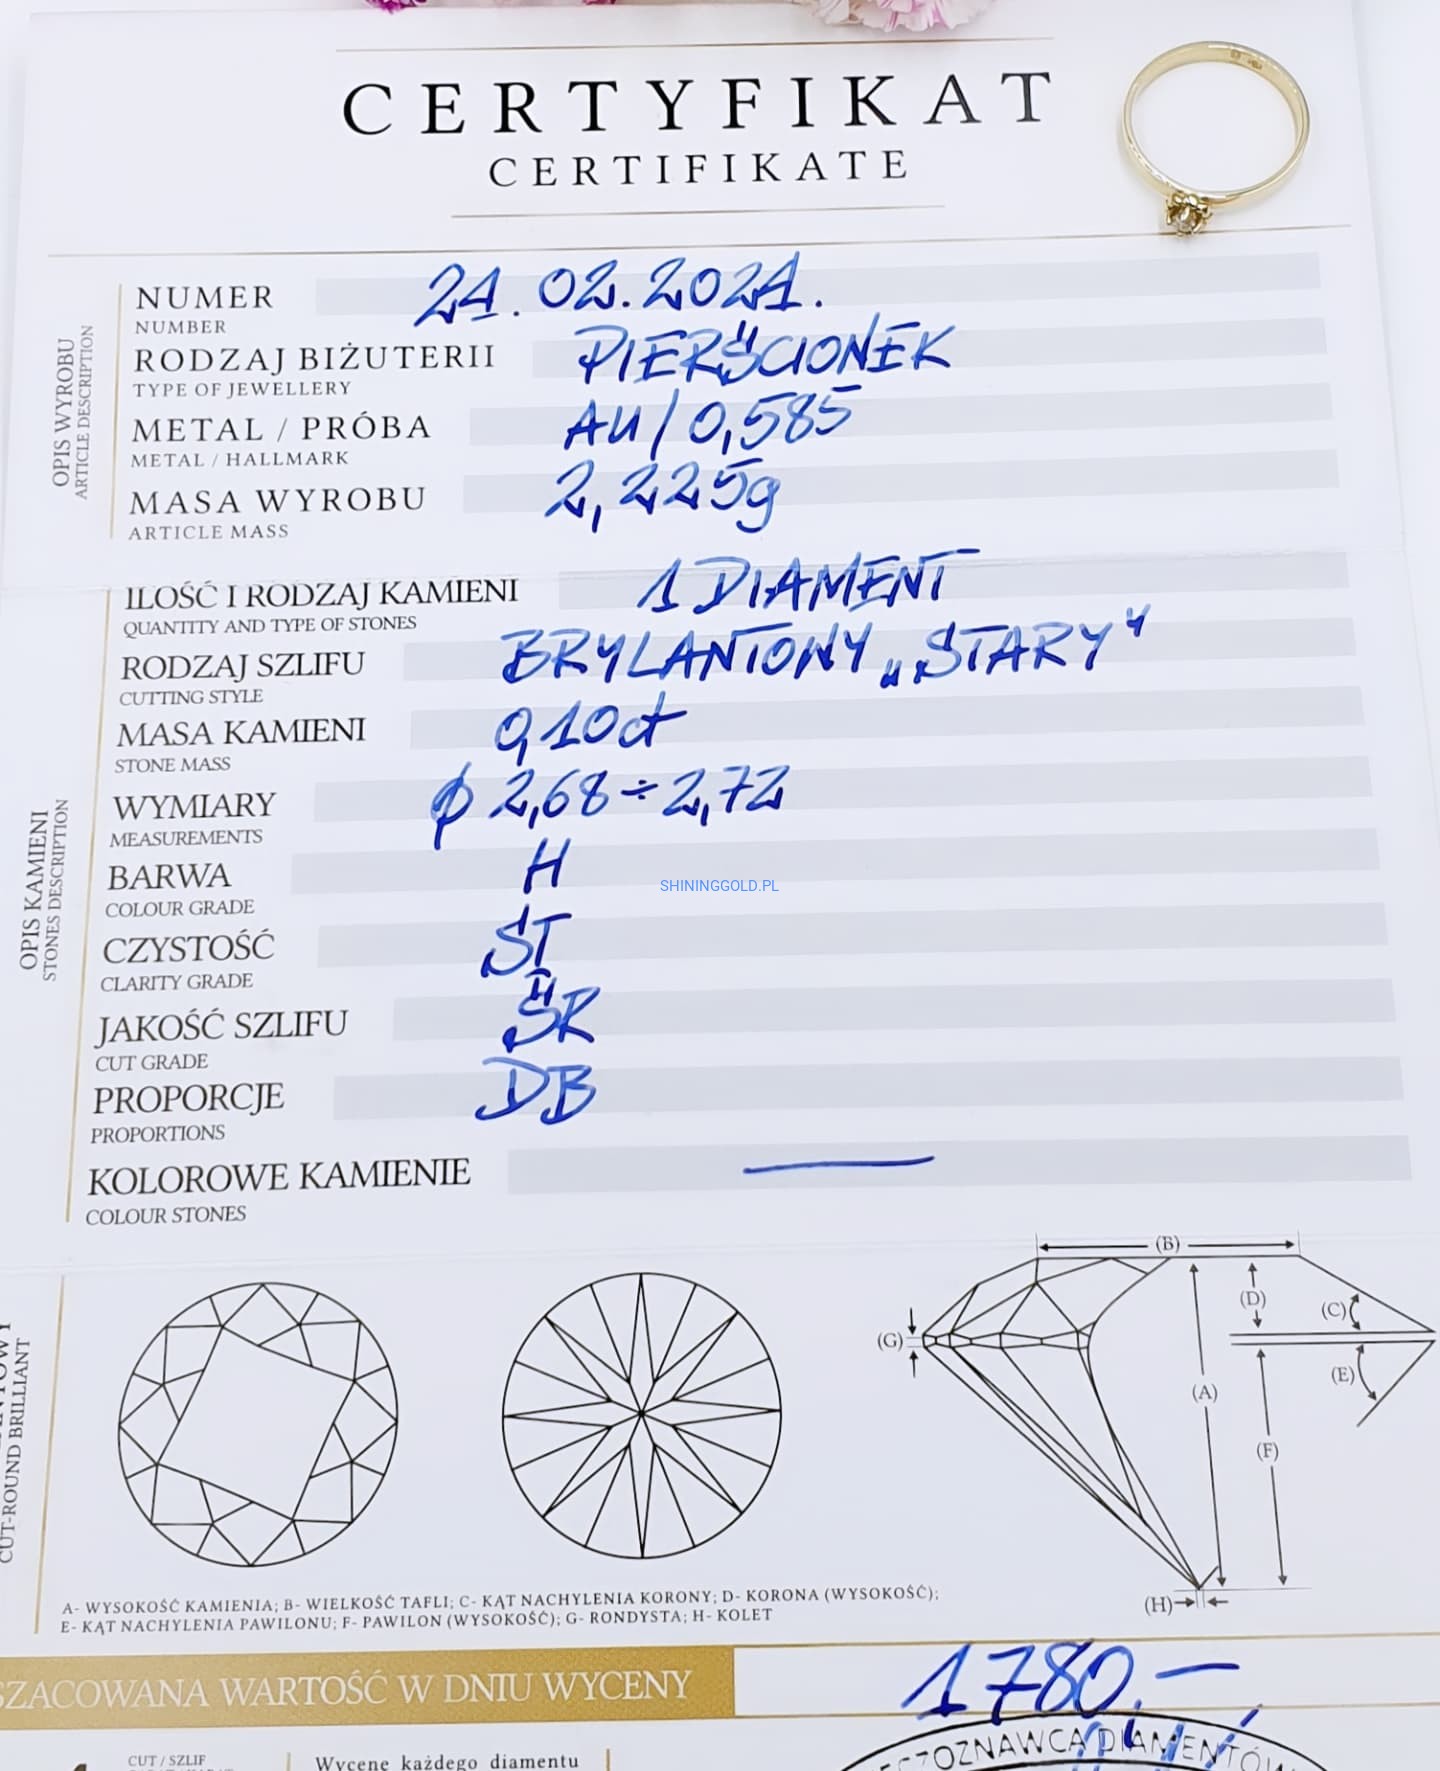 CERTYFIKAT
CERTIFIKATE
OPIS WYROBU
ARTICLE DESCRIPTION
NUMER 21.02.2021.
NUMBER
RODZAJ BIŻUTERII PIERŚCIONEK
TYPE OF JEWELLERY
METAL / PRÓBA AU/0,585
METAL / HALLMARK
MASA WYROBU 2,225g
ARTICLE MASS
OPIS KAMIENI
STONES DESCRIPTION
ILOŚĆ I RODZAJ KAMIENI 1 DIAMENT
QUANTITY AND TYPE OF STONES
RODZAJ SZLIFU BRYLANTOWY „STARY”
CUTTING STYLE
MASA KAMIENI 0,10ct
STONE MASS
WYMIARY ϕ 2,68÷2,72
MEASUREMENTS
BARWA H
COLOUR GRADE
SHININGGOLD.PL
CZYSTOŚĆ ST
CLARITY GRADE
JAKOŚĆ SZLIFU ŚR
CUT GRADE
PROPORCJE DB
PROPORTIONS
KOLOROWE KAMIENIE —
COLOUR STONES
CUT-ROUND BRILLIANT
(B)
(D)
(C)
(G)
(E)
(A)
(F)
(H)
A- WYSOKOŚĆ KAMIENIA; B- WIELKOŚĆ TAFLI; C- KĄT NACHYLENIA KORONY; D- KORONA (WYSOKOŚĆ);
E- KĄT NACHYLENIA PAWILONU; F- PAWILON (WYSOKOŚĆ); G- RONDYSTA; H- KOLET
SZACOWANA WARTOŚĆ W DNIU WYCENY 1780.—
CUT / SZLIF
Wycenę każdego diamentu
CZOZNAWCA DIAMENTÓW